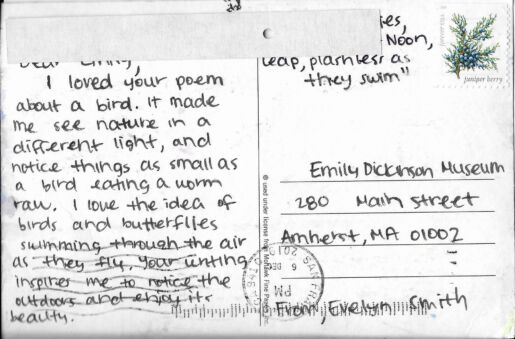 Dear
I loved your poem
about a bird. It made
me see nature in a
different light, and
notice things as small as
a bird eating a worm
raw. I love the idea of
birds and butterflies
swimming through the air
as they fly, your writing
inspires me to notice the
outdoors and enjoy its
beauty.
Noon,
Leap, plashless as
they swim"
forever usa
juniper berry
Emily Dickinson Museum
280 Main Street
Amherst, MA 01002
From, Evelyn Smith
SAN FRAN
6 DEC 2012
PM